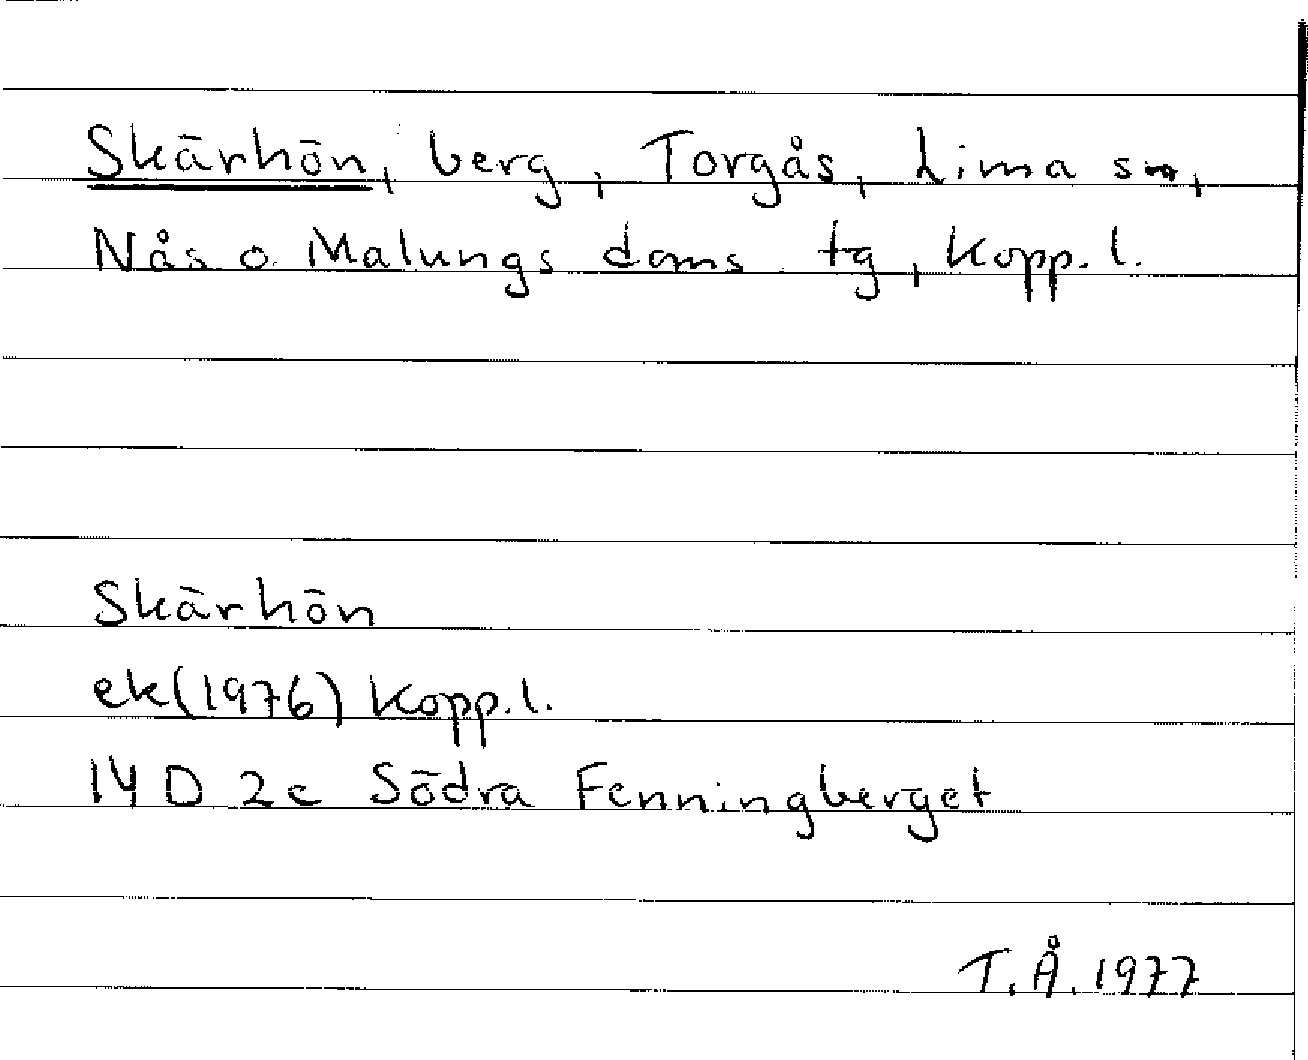 Skärhön, berg, Torgås, Lima sn,
Nås o. Malungs doms tg, Kopp. l.
Skärhön
ek(1976) Kopp. l.
14 D 2c Södra Fenningberget
T.Å. 1977